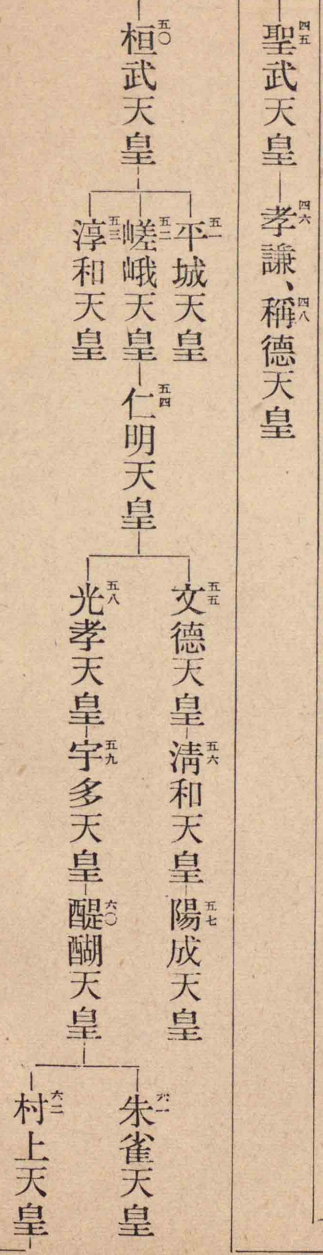 四五
聖武天皇
四六
孝謙、
四八
稱德天皇
五〇
桓武天皇
五一
平城天皇
五二
嵯峨天皇
五三
淳和天皇
五四
仁明天皇
五五
文德天皇
五六
淸和天皇
五七
陽成天皇
五八
光孝天皇
五九
宇多天皇
六〇
醍醐天皇
六一
朱雀天皇
六二
村上天皇